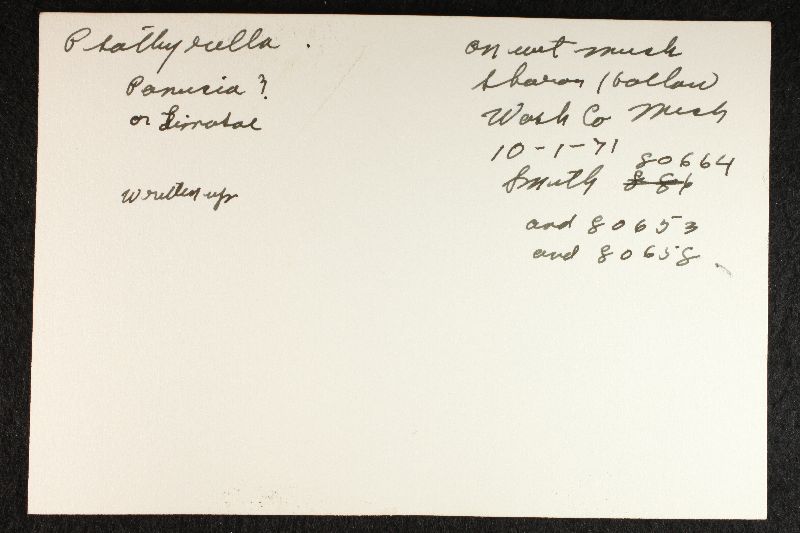 Psathyrella .
Panusia ?
or
written up
on wet muck
Sharon Hollow
Wash Co Mich
10-1-71
80664
Smith
and 80653
and 80658